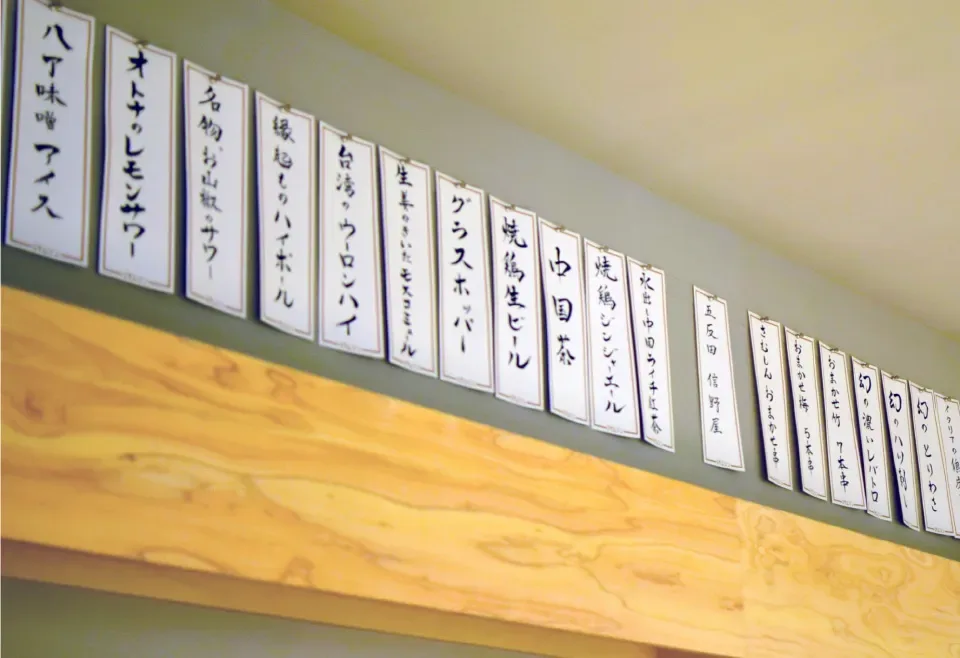 八丁味噌アイス
オトナのレモンサワー
名物お山椒のサワー
縁起ものハイボール
台湾のウーロンハイ
生姜のきいたモスコミュール
グラスホッパー
焼鶏生ビール
中国茶
焼鶏ジンジャーエール
水出し中国ライチ紅茶
五反田 信野屋
さむしん おまかせ串
おまかせ梅 5本串
おまかせ竹 7本串
幻の濃いレバトロ
幻のハツ刺し
幻のとりわさ
イタリアの